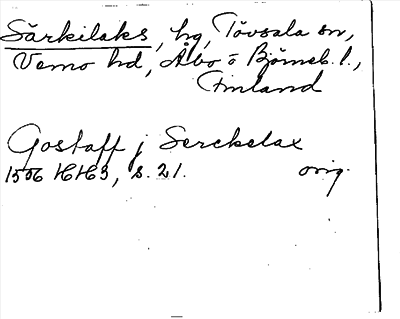 Särkilaks, hg, Tövsala sn,
Vemo hd, Åbo o Björneb. l.,
Finland
Gostaff j Serckelax
1506 HH3, s. 21. orig.